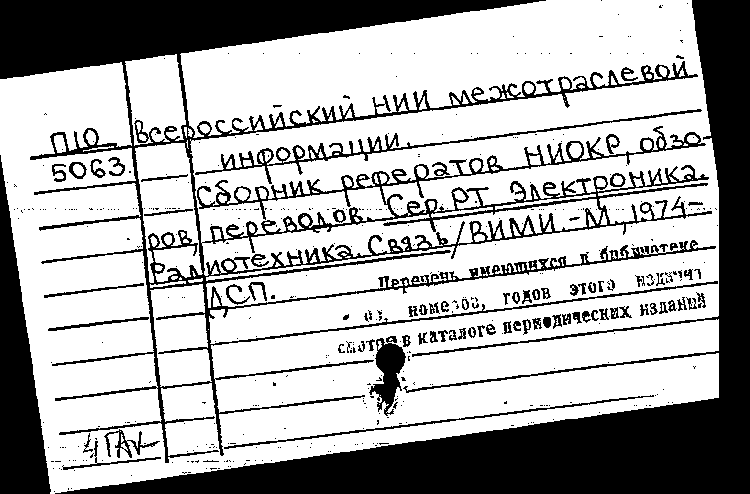 П10 Всероссийский НИИ межотраслевой
5063. информации.
Сборник рефератов НИОКР, обзо-
ров, переводов. Сер. РТ, Электроника.
Радиотехника. Связь/ВИМИ.-М., 1974-
ДСП.
Перечень имеющихся в библиотеке
номеров, годов этого издания
смотри в каталоге периодических изданий